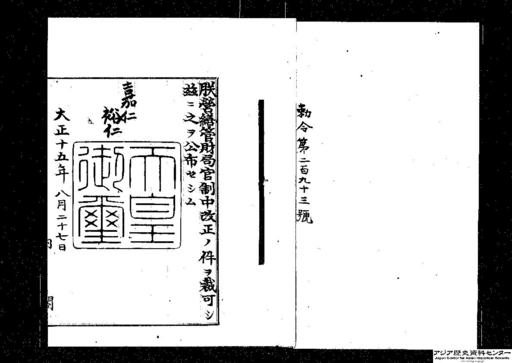 勅令第二百九十三號
朕營繕管財局官制中改正ノ件ヲ裁可シ
茲ニ之ヲ公布セシム
嘉仁
裕仁
天皇
御璽
大正十五年八月二十七日
アジア歴史資料センター
Japan Center for Asian Historical Records